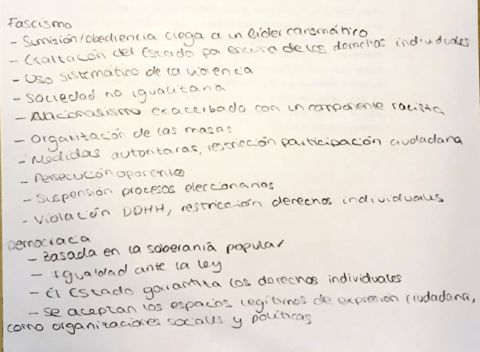 Fascismo
- Sumisión/obediencia ciega a un líder carismático
- Exaltación del Estado por encima de los derechos individuales
- Uso sistemático de la violencia
- Sociedad no igualitaria
- Nacionalismo exacerbado con un componente racista
- Organización de las masas
- Medidas autoritarias, restricción participación ciudadana
- Persecución oponentes
- Suspensión procesos eleccionarios
- Violación DDHH, restricción derechos individuales
Democracia
- Basada en la soberanía popular
- Igualdad ante la ley
- El Estado garantiza los derechos individuales
- Se aceptan los espacios legítimos de expresión ciudadana,
como organizaciones sociales y políticas